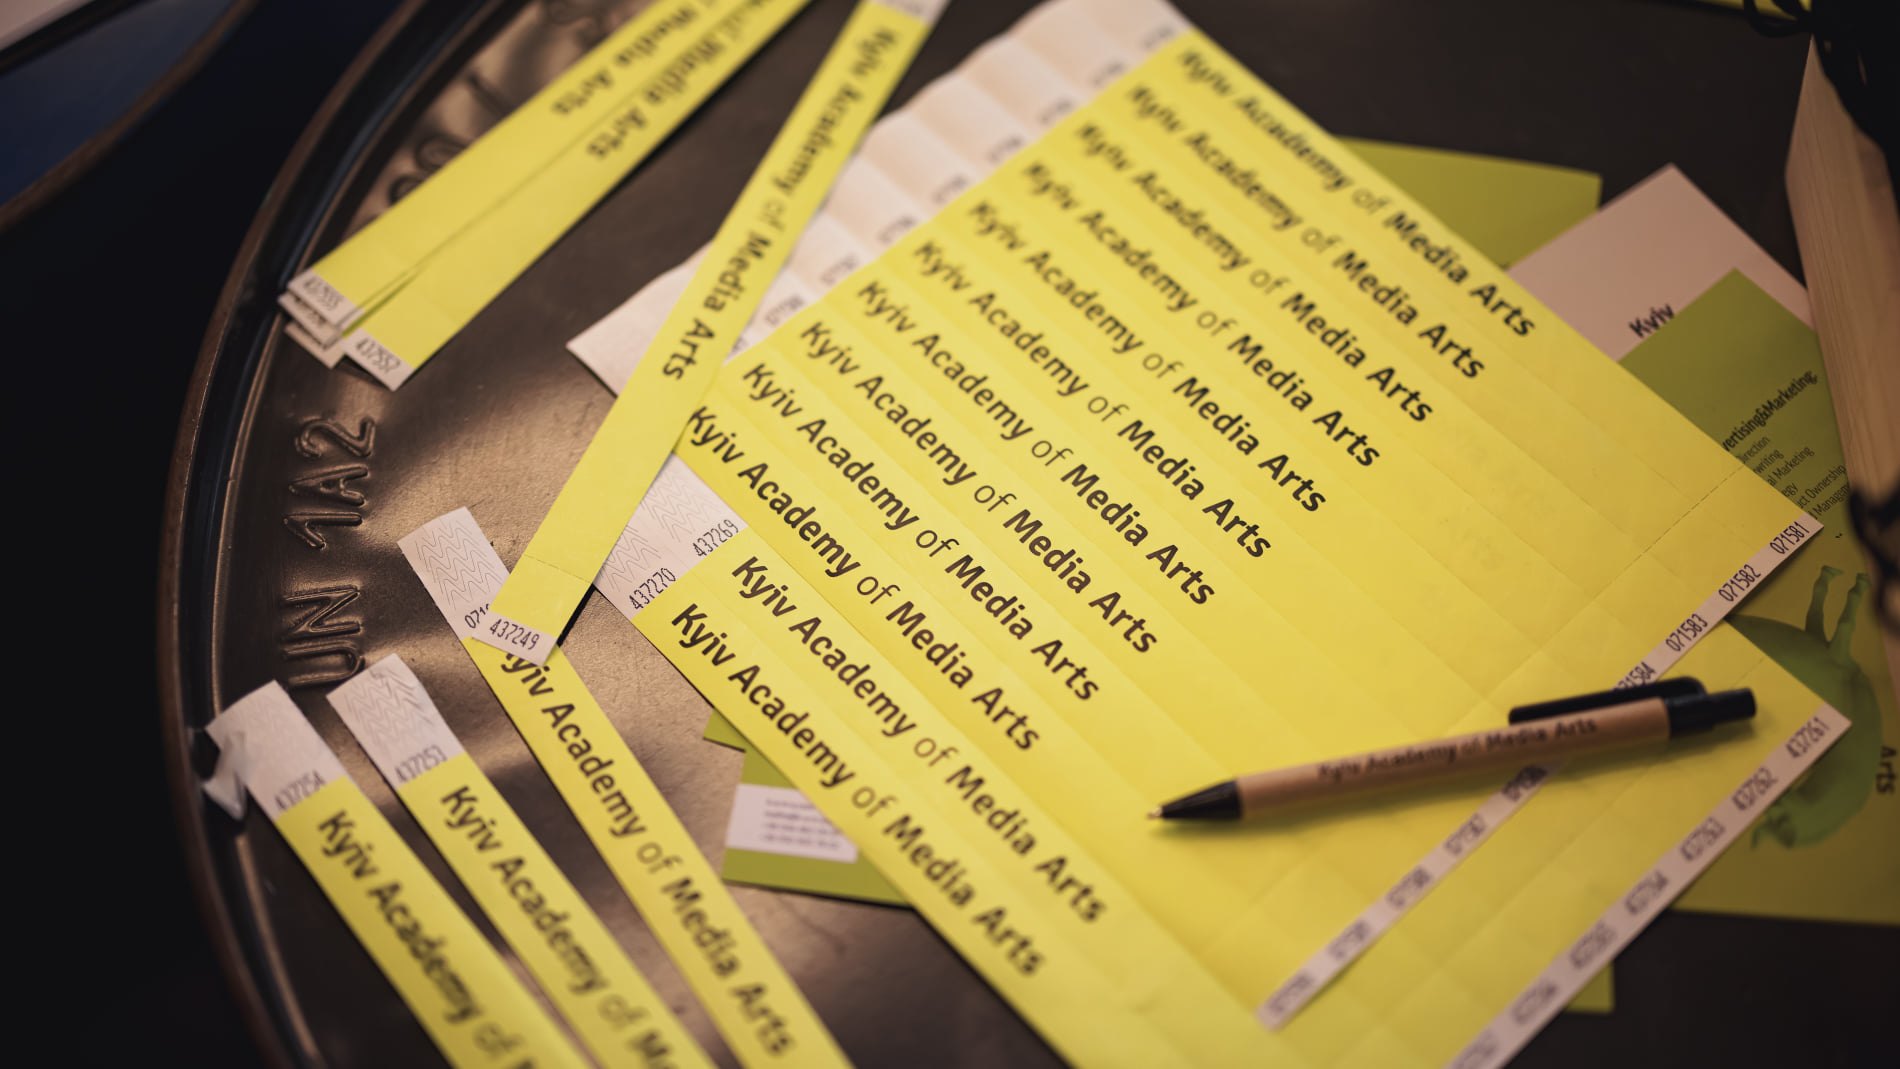 Media Arts
Media Arts
437555
437557
Kyiv Academy of Media Arts
437249
UN 1A2
Kyiv Academy of Media Arts
Kyiv Academy of Media Arts
Kyiv Academy of Media Arts
Kyiv Academy of Media Arts
Kyiv Academy of Media Arts
Kyiv Academy of Media Arts
Kyiv Academy of Media Arts
Kyiv Academy of Media Arts
Kyiv Academy of Media Arts
Kyiv Academy of Media Arts
071581
071582
071583
437269
437270
Kyiv Academy of Media Arts
Kyiv Academy of Media Arts
437261
437262
437263
437264
Kyiv Academy of Media Arts
Kyiv Academy of Media Arts
437253
Kyiv Academy of
437254
Kyiv Academy of
Kyiv
Marketing
Arts